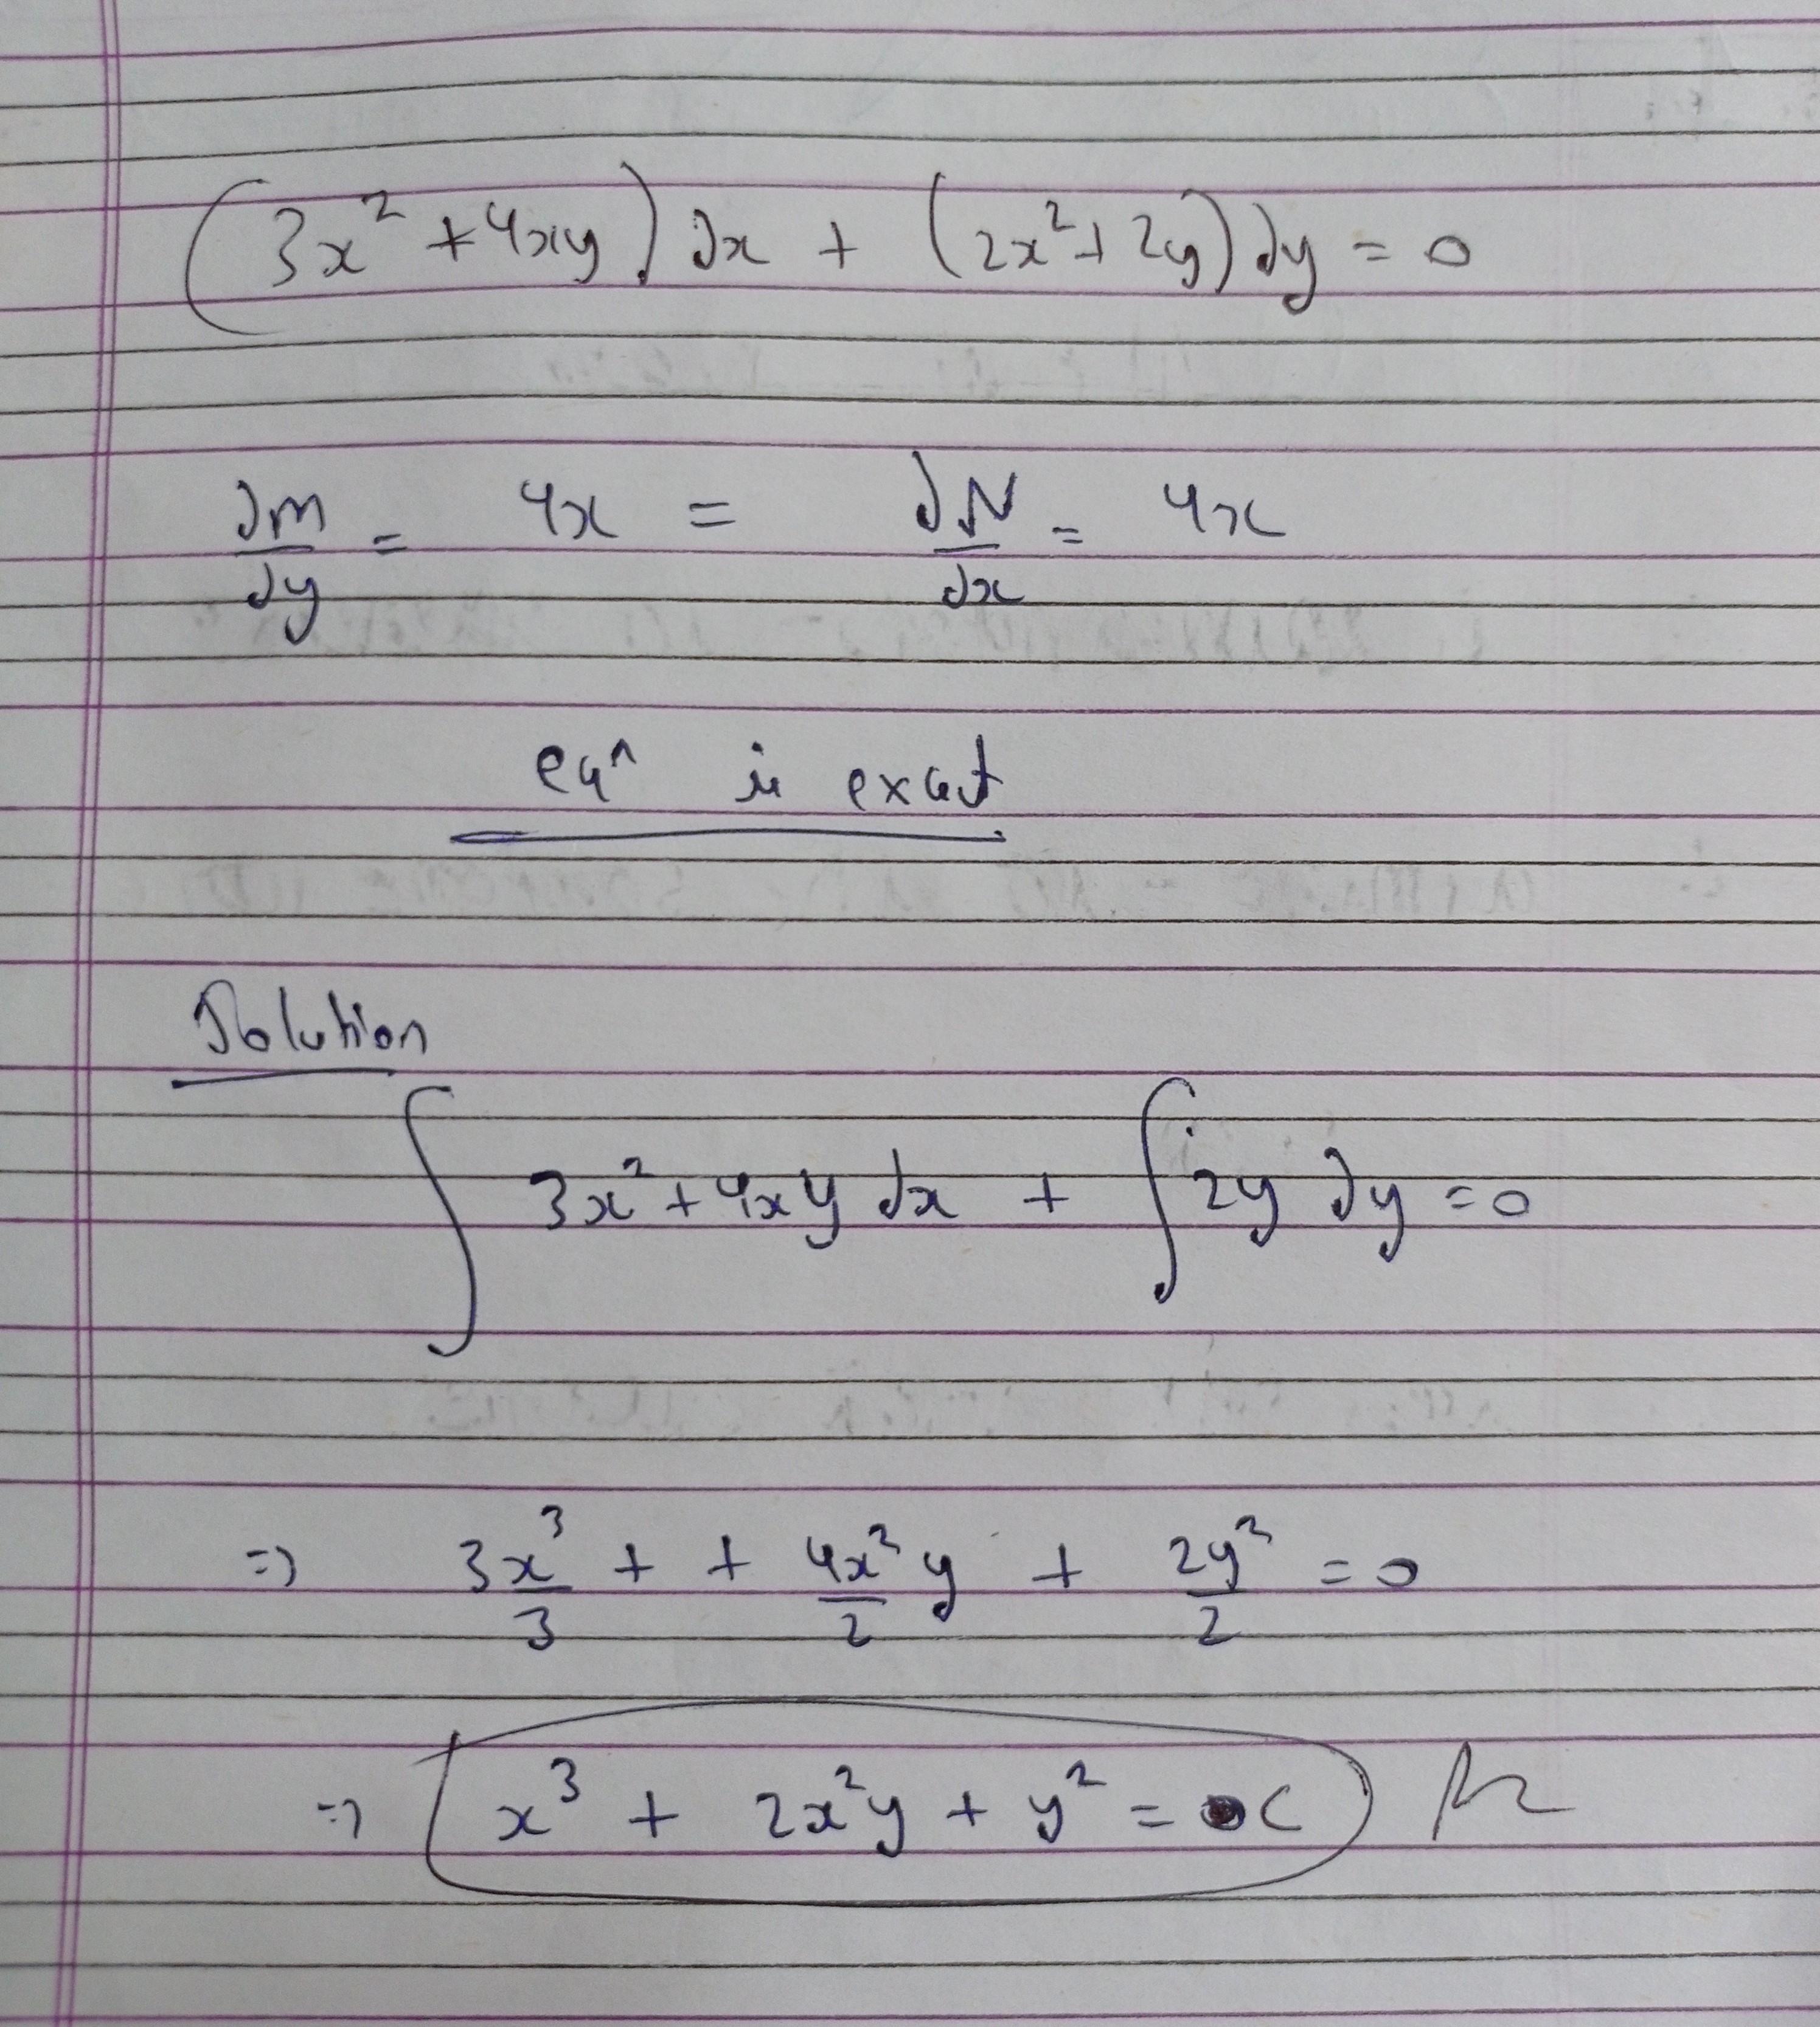 (3x² + 4xy) dx + (2x² + 2y) dy = 0
∂M/∂y = 4x = ∂N/∂x = 4x
eqⁿ is exact
Solution
∫ 3x² + 4xy dx + ∫ 2y dy = 0
=> 3x³/3 + + 4x²/2 y + 2y²/2 = 0
=> x³ + 2x²y + y² = C